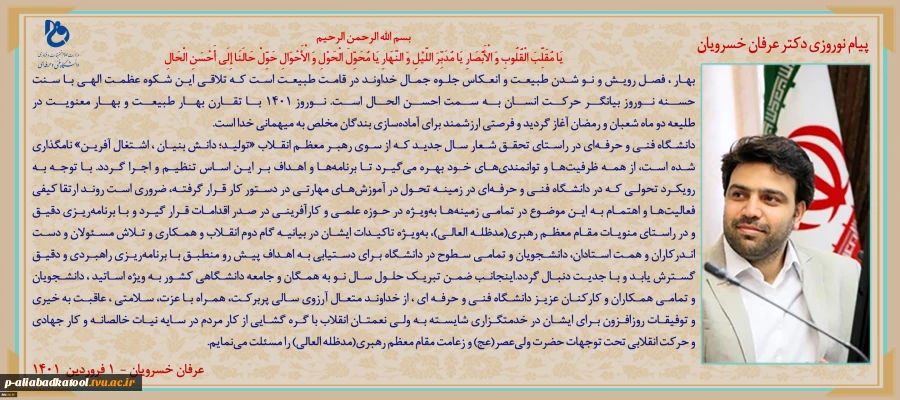 وزارت علوم، تحقیقات و فناوری
دانشگاه فنی و حرفه‌ای
پیام نوروزی دکتر عرفان خسرویان
بسم الله الرحمن الرحیم
يَا مُقَلِّبَ الْقُلُوبِ وَ الْأَبْصَارِ يَا مُدَبِّرَ اللَّيْلِ وَ النَّهَارِ يَا مُحَوِّلَ الْحَوْلِ وَ الْأَحْوَالِ حَوِّلْ حَالَنَا إِلَى أَحْسَنِ الْحَالِ
بهار، فصل رویش و نو شدن طبیعت و انعکاس جلوه جمال خداوند در قامت طبیعت است که تلاقی این شکوه عظمت الهی با سنت
حسنه نوروز بیانگر حرکت انسان به سمت احسن الحال است. نوروز ۱۴۰۱ با تقارن بهار طبیعت و بهار معنویت در
طلیعه دو ماه شعبان و رمضان آغاز گردید و فرصتی ارزشمند برای آماده‌سازی بندگان مخلص به میهمانی خدا است.
دانشگاه فنی و حرفه‌ای در راستای تحقق شعار سال جدید که از سوی رهبر معظم انقلاب «تولید؛ دانش بنیان ، اشتغال آفرین» نامگذاری
شده است، از همه ظرفیت‌ها و توانمندی‌های خود بهره می‌گیرد تا برنامه‌ها و اهداف بر این اساس تنظیم و اجرا گردد. با توجه به
رویکرد تحولی که در دانشگاه فنی و حرفه‌ای در زمینه تحول در آموزش‌های مهارتی در دستور کار قرار گرفته، ضروری است روند ارتقا کیفی
فعالیت‌ها و اهتمام به این موضوع در تمامی زمینه‌ها به‌ویژه در حوزه علمی و کارآفرینی در صدر اقدامات قرار گیرد و با برنامه‌ریزی دقیق
و در راستای منویات مقام معظم رهبری(مدظله العالی)، به‌ویژه تاکیدات ایشان در بیانیه گام دوم انقلاب و همکاری و تلاش مسئولان و دست
اندرکاران و همت استادان، دانشجویان و تمامی سطوح در دانشگاه برای دستیابی به اهداف پیش رو منطبق با برنامه‌ریزی راهبردی و دقیق
گسترش یابد و با جدیت دنبال گردد.اینجانب ضمن تبریک حلول سال نو به همگان و جامعه دانشگاهی کشور به ویژه اساتید ، دانشجویان
و تمامی همکاران و کارکنان عزیز دانشگاه فنی و حرفه ای ، از خداوند متعال آرزوی سالی پربرکت، همراه با عزت، سلامتی ، عاقبت به خیری
و توفیقات روزافزون برای ایشان در خدمتگزاری شایسته به ولی نعمتان انقلاب با گره گشایی از کار مردم در سایه نیات خالصانه و کار جهادی
و حرکت انقلابی تحت توجهات حضرت ولی‌عصر(عج) و زعامت مقام معظم رهبری(مدظله العالی) را مسئلت می‌نمایم.
عرفان خسرویان - ۱ فروردین ۱۴۰۱
p-aliabadkatool.tvu.ac.ir